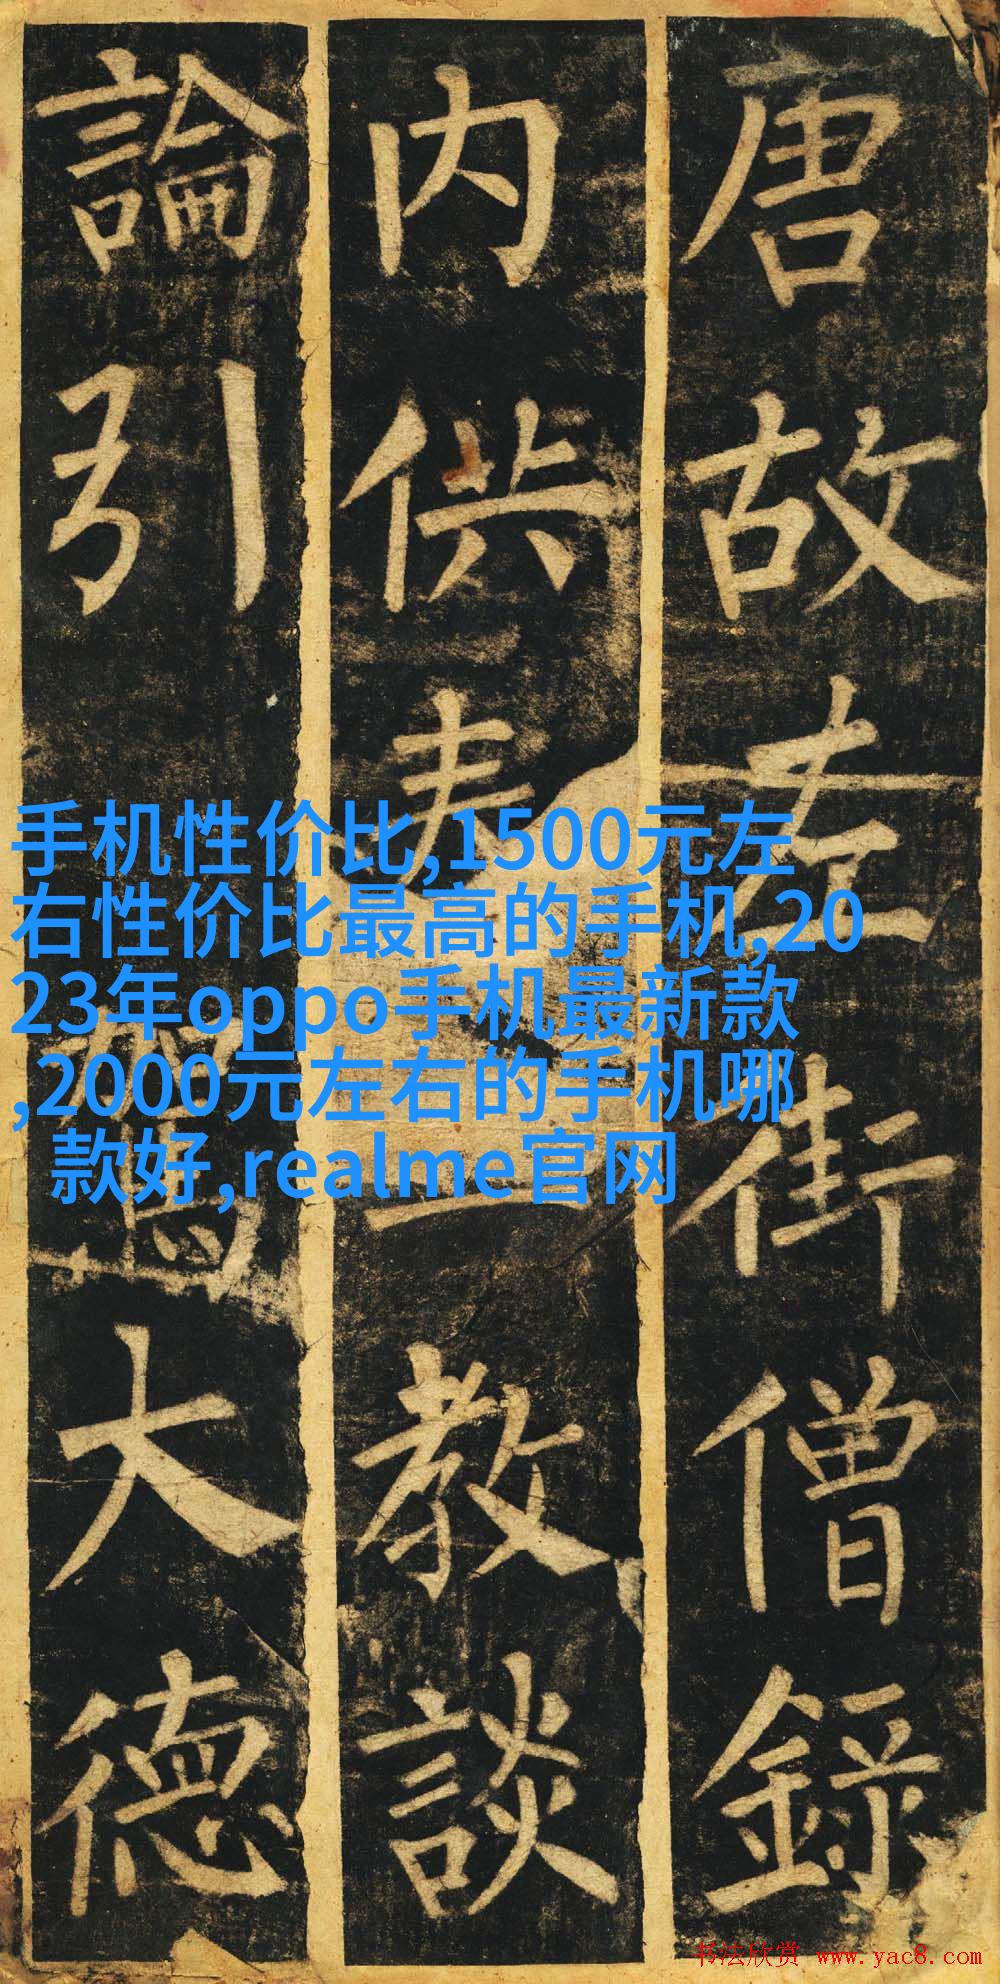 唐故左街僧錄
内供奉三教談
論引駕大德
手机性价比,1500元左
右性价比最高的手机,20
23年oppo手机最新款
,2000元左右的手机哪
款好,realme官网
书法欣赏 www.yac8.com